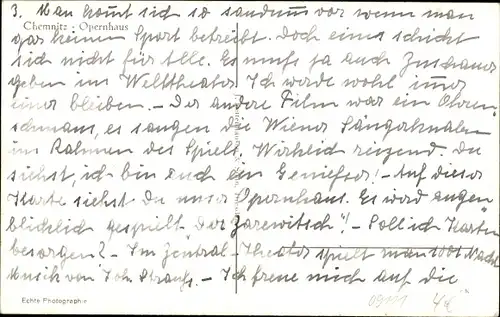 3. Man kommt sich so sandumm vor wenn man
gar keinen Sport betreibt. Doch eins schickt
Chemnitz · Opernhaus
sich nicht für Alle. Es muß ja auch Zuschauer
geben im Welttheater. Ich werde wohl immer
einer bleiben. – Der andere Film war ein Ohren-
schmaus, es sangen die Wiener Sängerknaben
im Rahmen des Spiels. Wirklich reizend. Du
siehst, ich bin auch ein Genießer! – Auf dieser
Karte siehst du unser Opernhaus. Es wird augen-
blicklich gespielt „Der Zarewitsch"! – Soll ich Karten
besorgen? – Im Zentral-Theater spielt man 1001 Nacht
Musik von Joh. Strauß. – Ich freue mich auf die
Echte Photographie